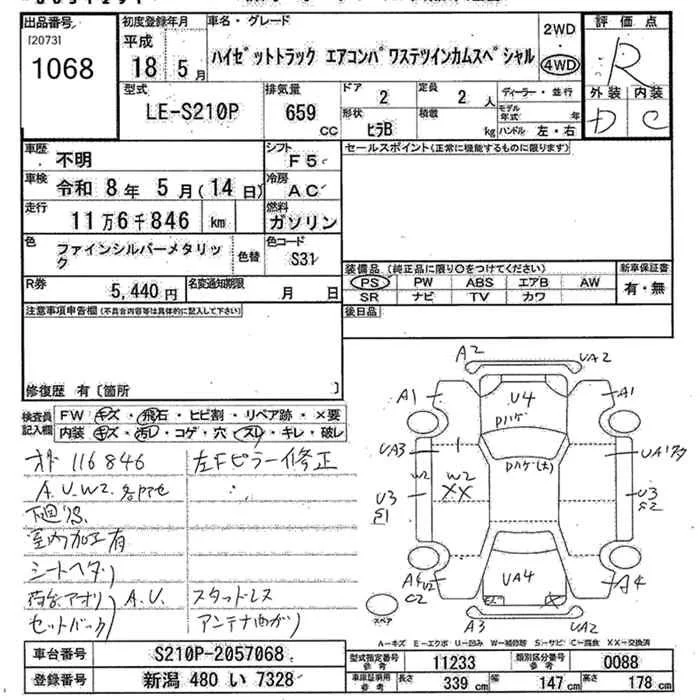 出品番号
[2073]
1068
初度登録年月
平成
18年5月
車名・グレード
ハイゼットトラック エアコンパワステツインカムスペシャル
2WD
4WD
評価点
R
外装 内装
D C
型式
LE-S210P
排気量
659 cc
ドア 2
形状 ヒラB
定員 2人
積載 kg
ディーラー・並行
モデル年式 年
ハンドル 左・右
車歴 不明
シフト F5
車検 令和 8年 5月(14日)
冷房 AC
走行 11万6千846 km
燃料 ガソリン
色 ファインシルバーメタリック
色替
色コード S31
R券 5,440円
名変通知期限 月 日
セールスポイント(正常に機能するものに限ります)
装備品(純正品に限り○をつけてください)
新車保証書
PS PW ABS エアB AW
SR ナビ TV カワ
有・無
後日品
注意事項申告欄(不具合内容等は具体的に記入して下さい)
修復歴 有〔箇所 〕
検査員記入欄
FW キズ・飛石・ヒビ割・リペア跡・×要
内装 キズ・汚レ・コゲ・穴・スレ・キレ・破レ
オド 116846
左Fピラー修正
A.U.W2.各所
下廻り
室内加工有
シートヘタリ
荷台アオリ A.U. スタッドレス
セットバック アンテナ曲がり
A2 UA2
A1 U4 A1
Dハゲ
UA3 Dハゲ(大)
W2 W2
XX
U3 U3
S1 S2
UA4
A4 U2
C2
A4
A3 UA2
スペア
A-キズ E-エクボ U-凹み W-補修跡 S-サビ C-腐食 XX-交換済
車台番号 S210P-2057068
登録番号 新潟 480 い 7328
型式指定番号 参考 11233
類別区分番号 参考 0088
車庫証明用 参考 長さ 339 cm 幅 147 cm 高さ 178 cm